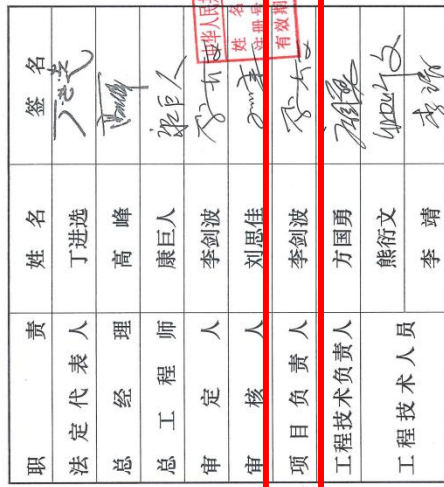 职 责 姓 名 签 名
法定代表人 丁进选 丁进选
总 经 理 高 峰
总 工 程 师 康巨人 康巨人
审 定 人 李剑波
审 核 人 刘思佳
项目负责人 李剑波
工程技术负责人 方国勇
工程技术人员 熊衍文
李 靖
中华人民共
姓 名
注册号
有效期